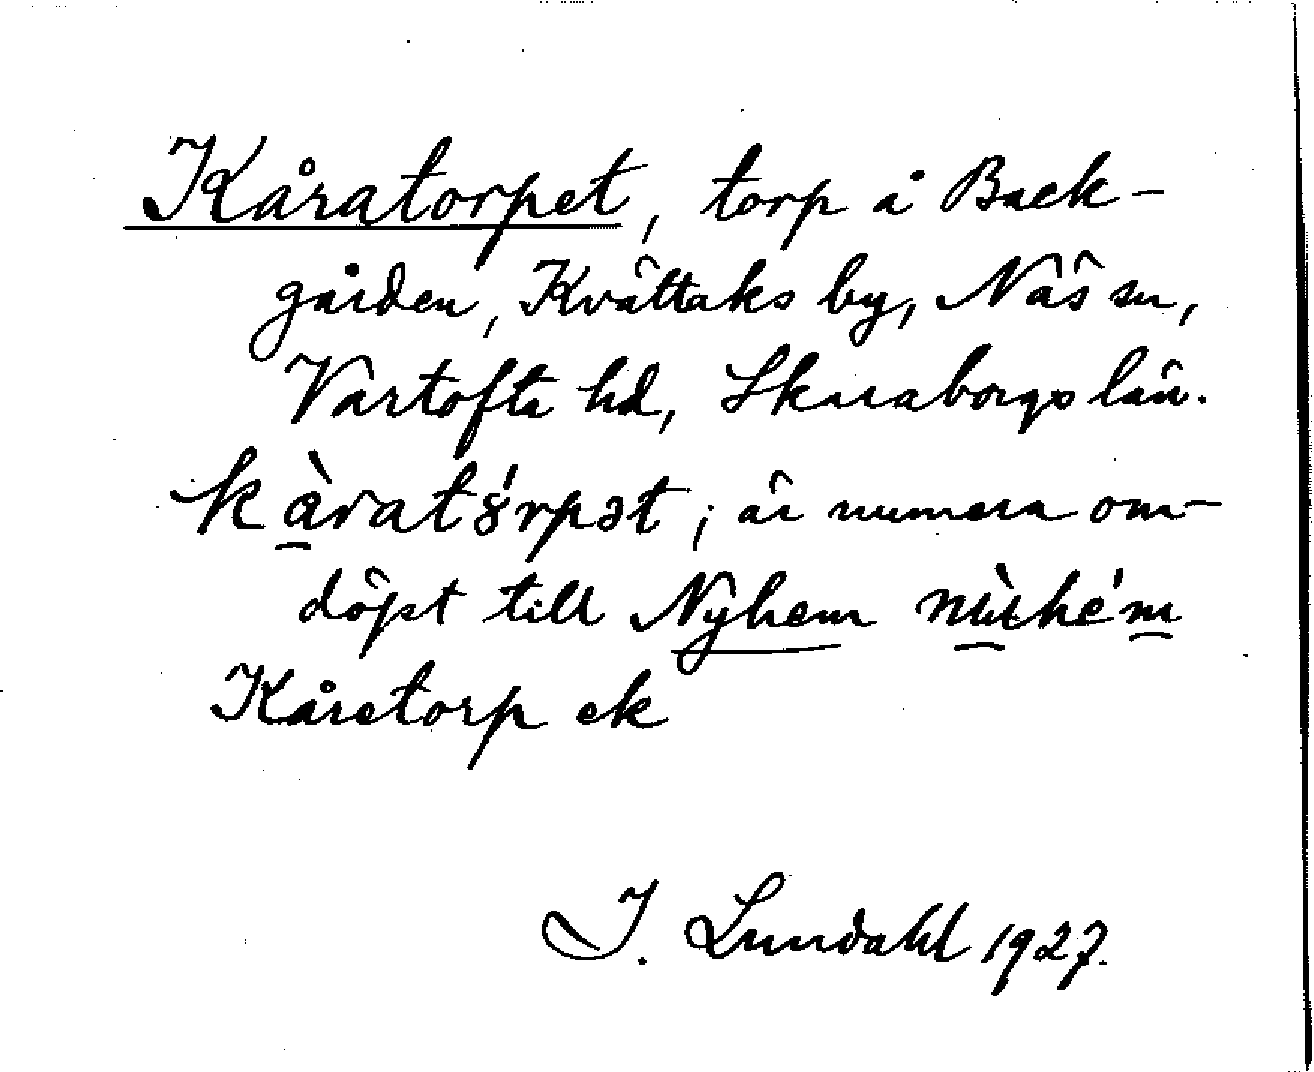 Kåratorpet, torp å Back-
gården, Kvättaks by, Näs sn,
Vartofta hd, Skaraborgs län.
kàrat8́rpət; är numera om-
döpt till Nyhem nùhém
Kåretorp ek
I. Lundahl 1927.